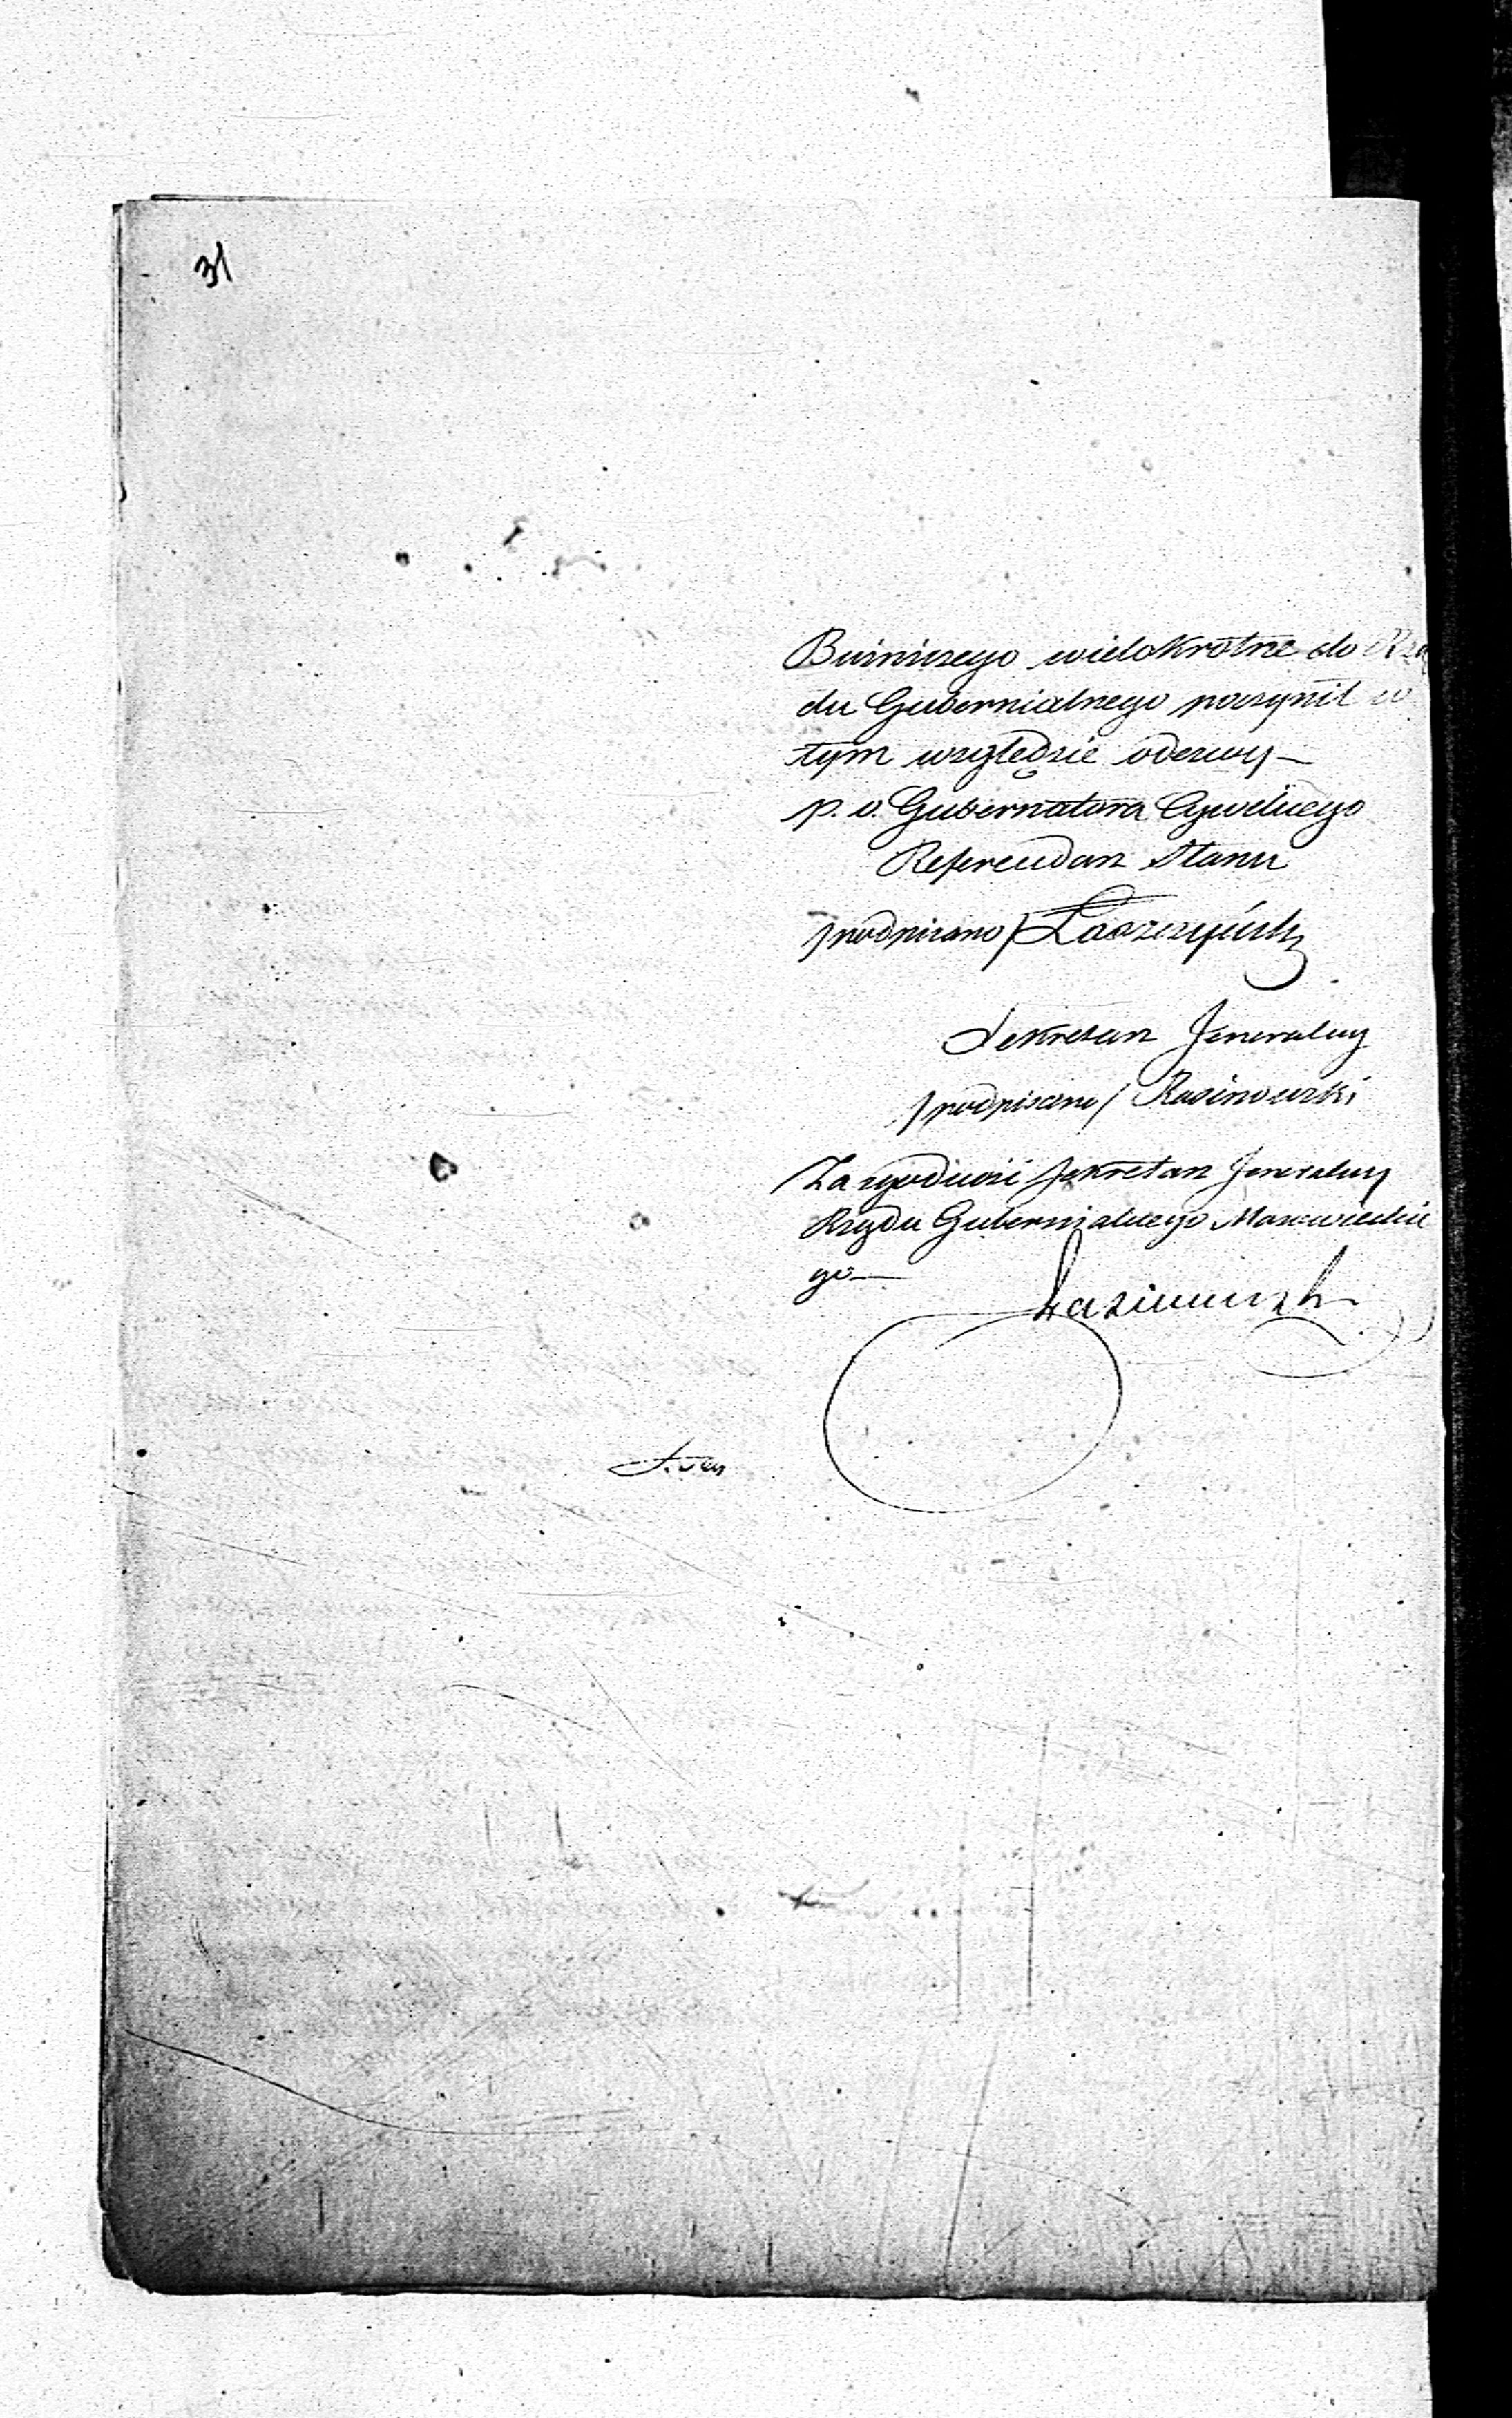 31
Buiniczego wielokrotne do Rzą
du Gubernialnego poczynił w
tym względzie odezwy —
p. o. Gubernatora Cywilnego
Referendarz Stanu
/podpisano/ Łaszczyński
Sekretarz Jeneralny
/podpisano/ Rosinowski
Za zgodność Sekretarz Jeneralny
Rządu Gubernialnego Mazowieckie
go —